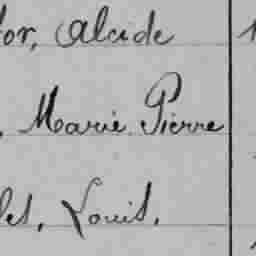 tor, Alcide
, Marie Pierre
les, Louis.